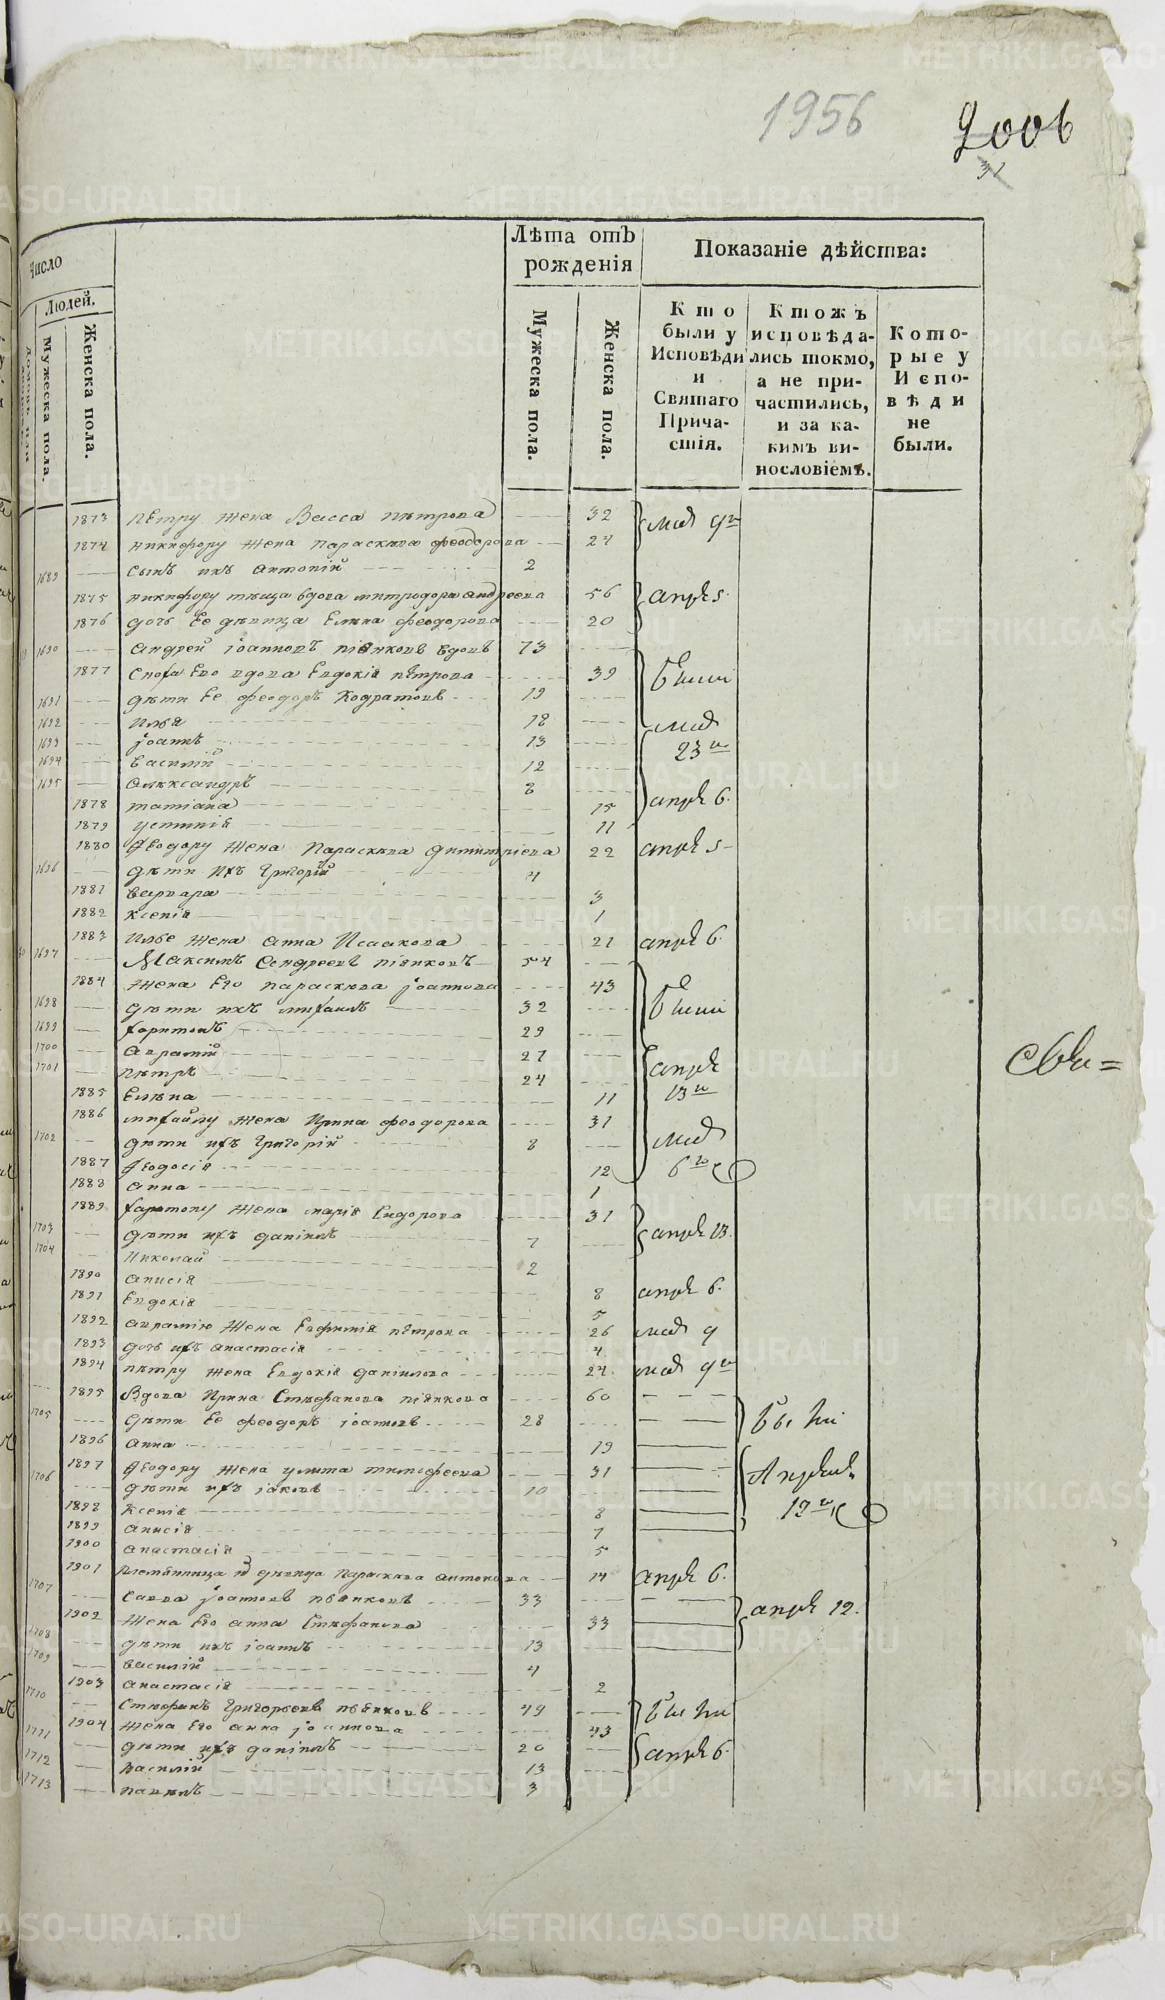 1956
2006
31
Число
Людей.
Мужеска пола.
Женска пола.
Лѣта отъ рожденія
Мужеска пола.
Женска пола.
Показаніе дѣйства:
Кто были у Исповѣди и Святаго Причастія.
Ктожъ исповѣдались токмо, а не причастились, и за какимъ винословіемъ.
Которые у Исповѣди не были.
1873 Петру жена Васса Петрова 32 мая 9го
1874 Никифору жена Параскева Феодорова 24
1689 Сынъ ихъ Антоній 2
1875 Никифору теща вдова Митродора Андреева 56 апрѣ 5.
1876 дочь Ее девица Елена Феодорова 20
1690 Андрей Іоанновъ Півнковъ вдовъ 73
1877 Сноха Его вдова Евдокія Петрова 39 были
1691 дети Ее Феодоръ Кодратовъ 19
1692 Илья 18 мая
1693 Іоаннъ 13 23го
1694 Василій 12
1695 Александръ 8
1878 Татіана 15 апрѣ 6.
1879 Устинія 11
1880 Феодору жена Параскева Димитріева 22 апрѣ 5
1696 дети Ихъ Григорій 4
1881 Варвара 3
1882 Ксенія 1
1883 Илье жена Анна Исаакова 21 апрѣ 6.
1697 Максимъ Андреевъ Півнковъ 54
1884 Жена Его Параскева Іоаннова 43 были
1698 дети ихъ Михаилъ 32
1699 Харитонъ 29
1700 Авраамій 27 апрѣ
1701 Петръ 24 13го
1885 Елена 11
1886 Михайлу жена Ирина Феодорова 31
1702 дети ихъ Григорій 8 мая
1887 Феодосія 12 6го
1888 Анна 1
1889 Харитону жена Марія Сидорова 31 апрѣ 13.
1703 дети ихъ Даніилъ 7
1704 Николай 2
1890 Анисія 8 апрѣ 6.
1891 Евдокія 5
1892 Авраамію жена Евфимія Петрова 26 мая 9
1893 дочь ихъ Анастасія 4
1894 Петру жена Евдокія Даніилова 24 мая 9го
1895 Вдова Ирина Стефанова Півнкова 60
1705 дети Ее Феодоръ Іоанновъ 28 были
1896 Анна 19
1897 Феодору жена Улита Тимофеева 31 Апрѣля
1706 дети ихъ Іаковъ 10
1898 Ксенія 8 12го
1899 Анисія 7
1900 Анастасія 5
1901 Племянница девица Параскева Антонова 14 апрѣ 6.
1707 Савва Іоанновъ Півнковъ 33
1902 Жена Его Анна Стефанова 33 апрѣ 12.
1708 дети ихъ Іоаннъ 13
1709 Василій 4
1903 Анастасія 2
1710 Стефанъ Григорьевъ Півнковъ 49 были
1904 Жена Его Анна Іоаннова 43
1711 дети ихъ Даніилъ 20 апрѣ 6.
1712 Василій 13
1713 Павелъ 3
METRIKI.GASO-URAL.RU